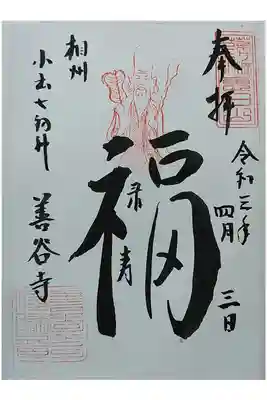 奉拝
令和三年
四月
三日
福
禄
寿
相州
小出七福神
善谷寺